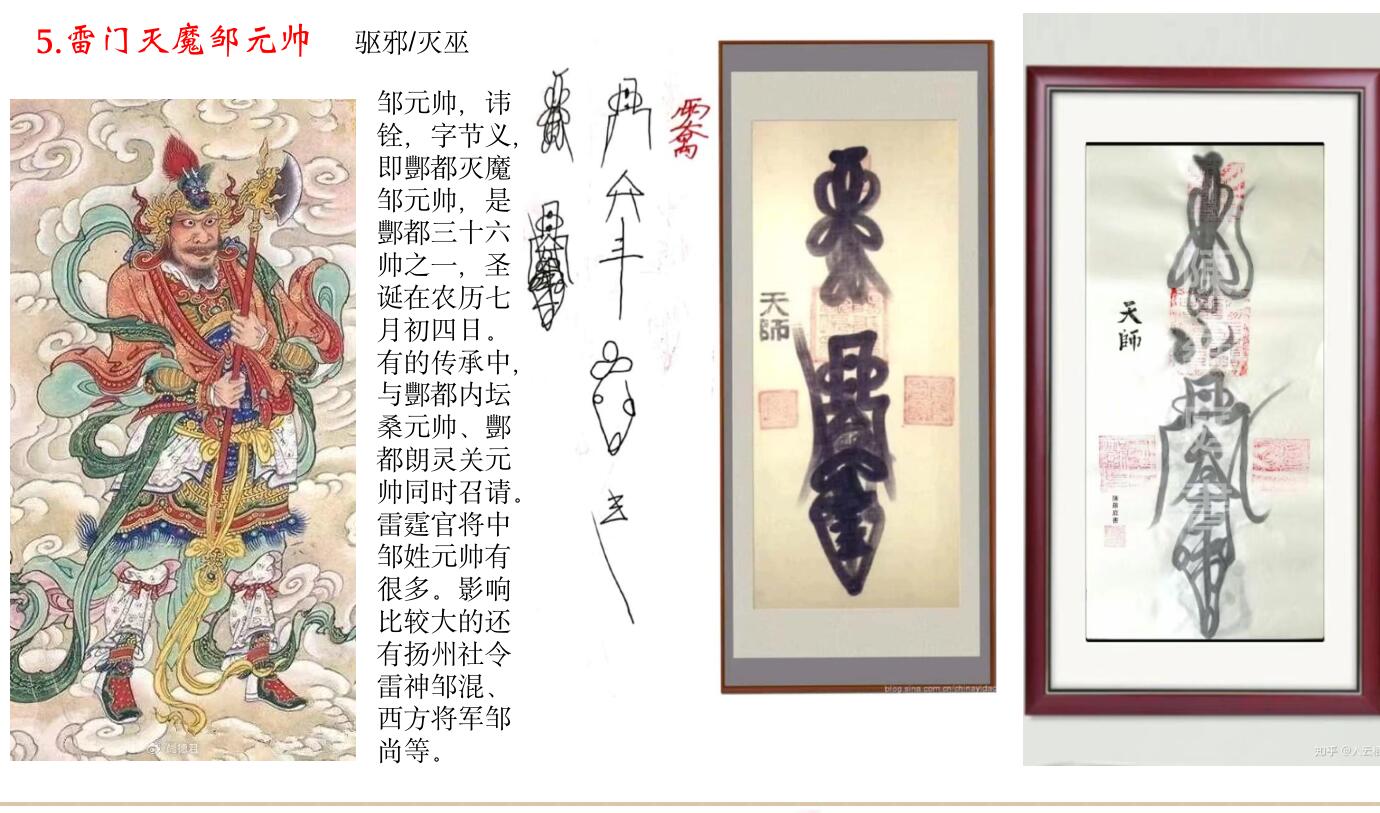 5.雷门天魔邹元帅
驱邪/灭巫
邹元帅，讳
铨，字节义，
即酆都灭魔
邹元帅，是
酆都三十六
帅之一，圣
诞在农历七
月初四日。
有的传承中，
与酆都内坛
桑元帅、酆
都朗灵关元
帅同时召请。
雷霆官将中
邹姓元帅有
很多。影响
比较大的还
有扬州社令
雷神邹混、
西方将军邹
尚等。
天師
天
師
blog.sina.com.cn/chinayidao